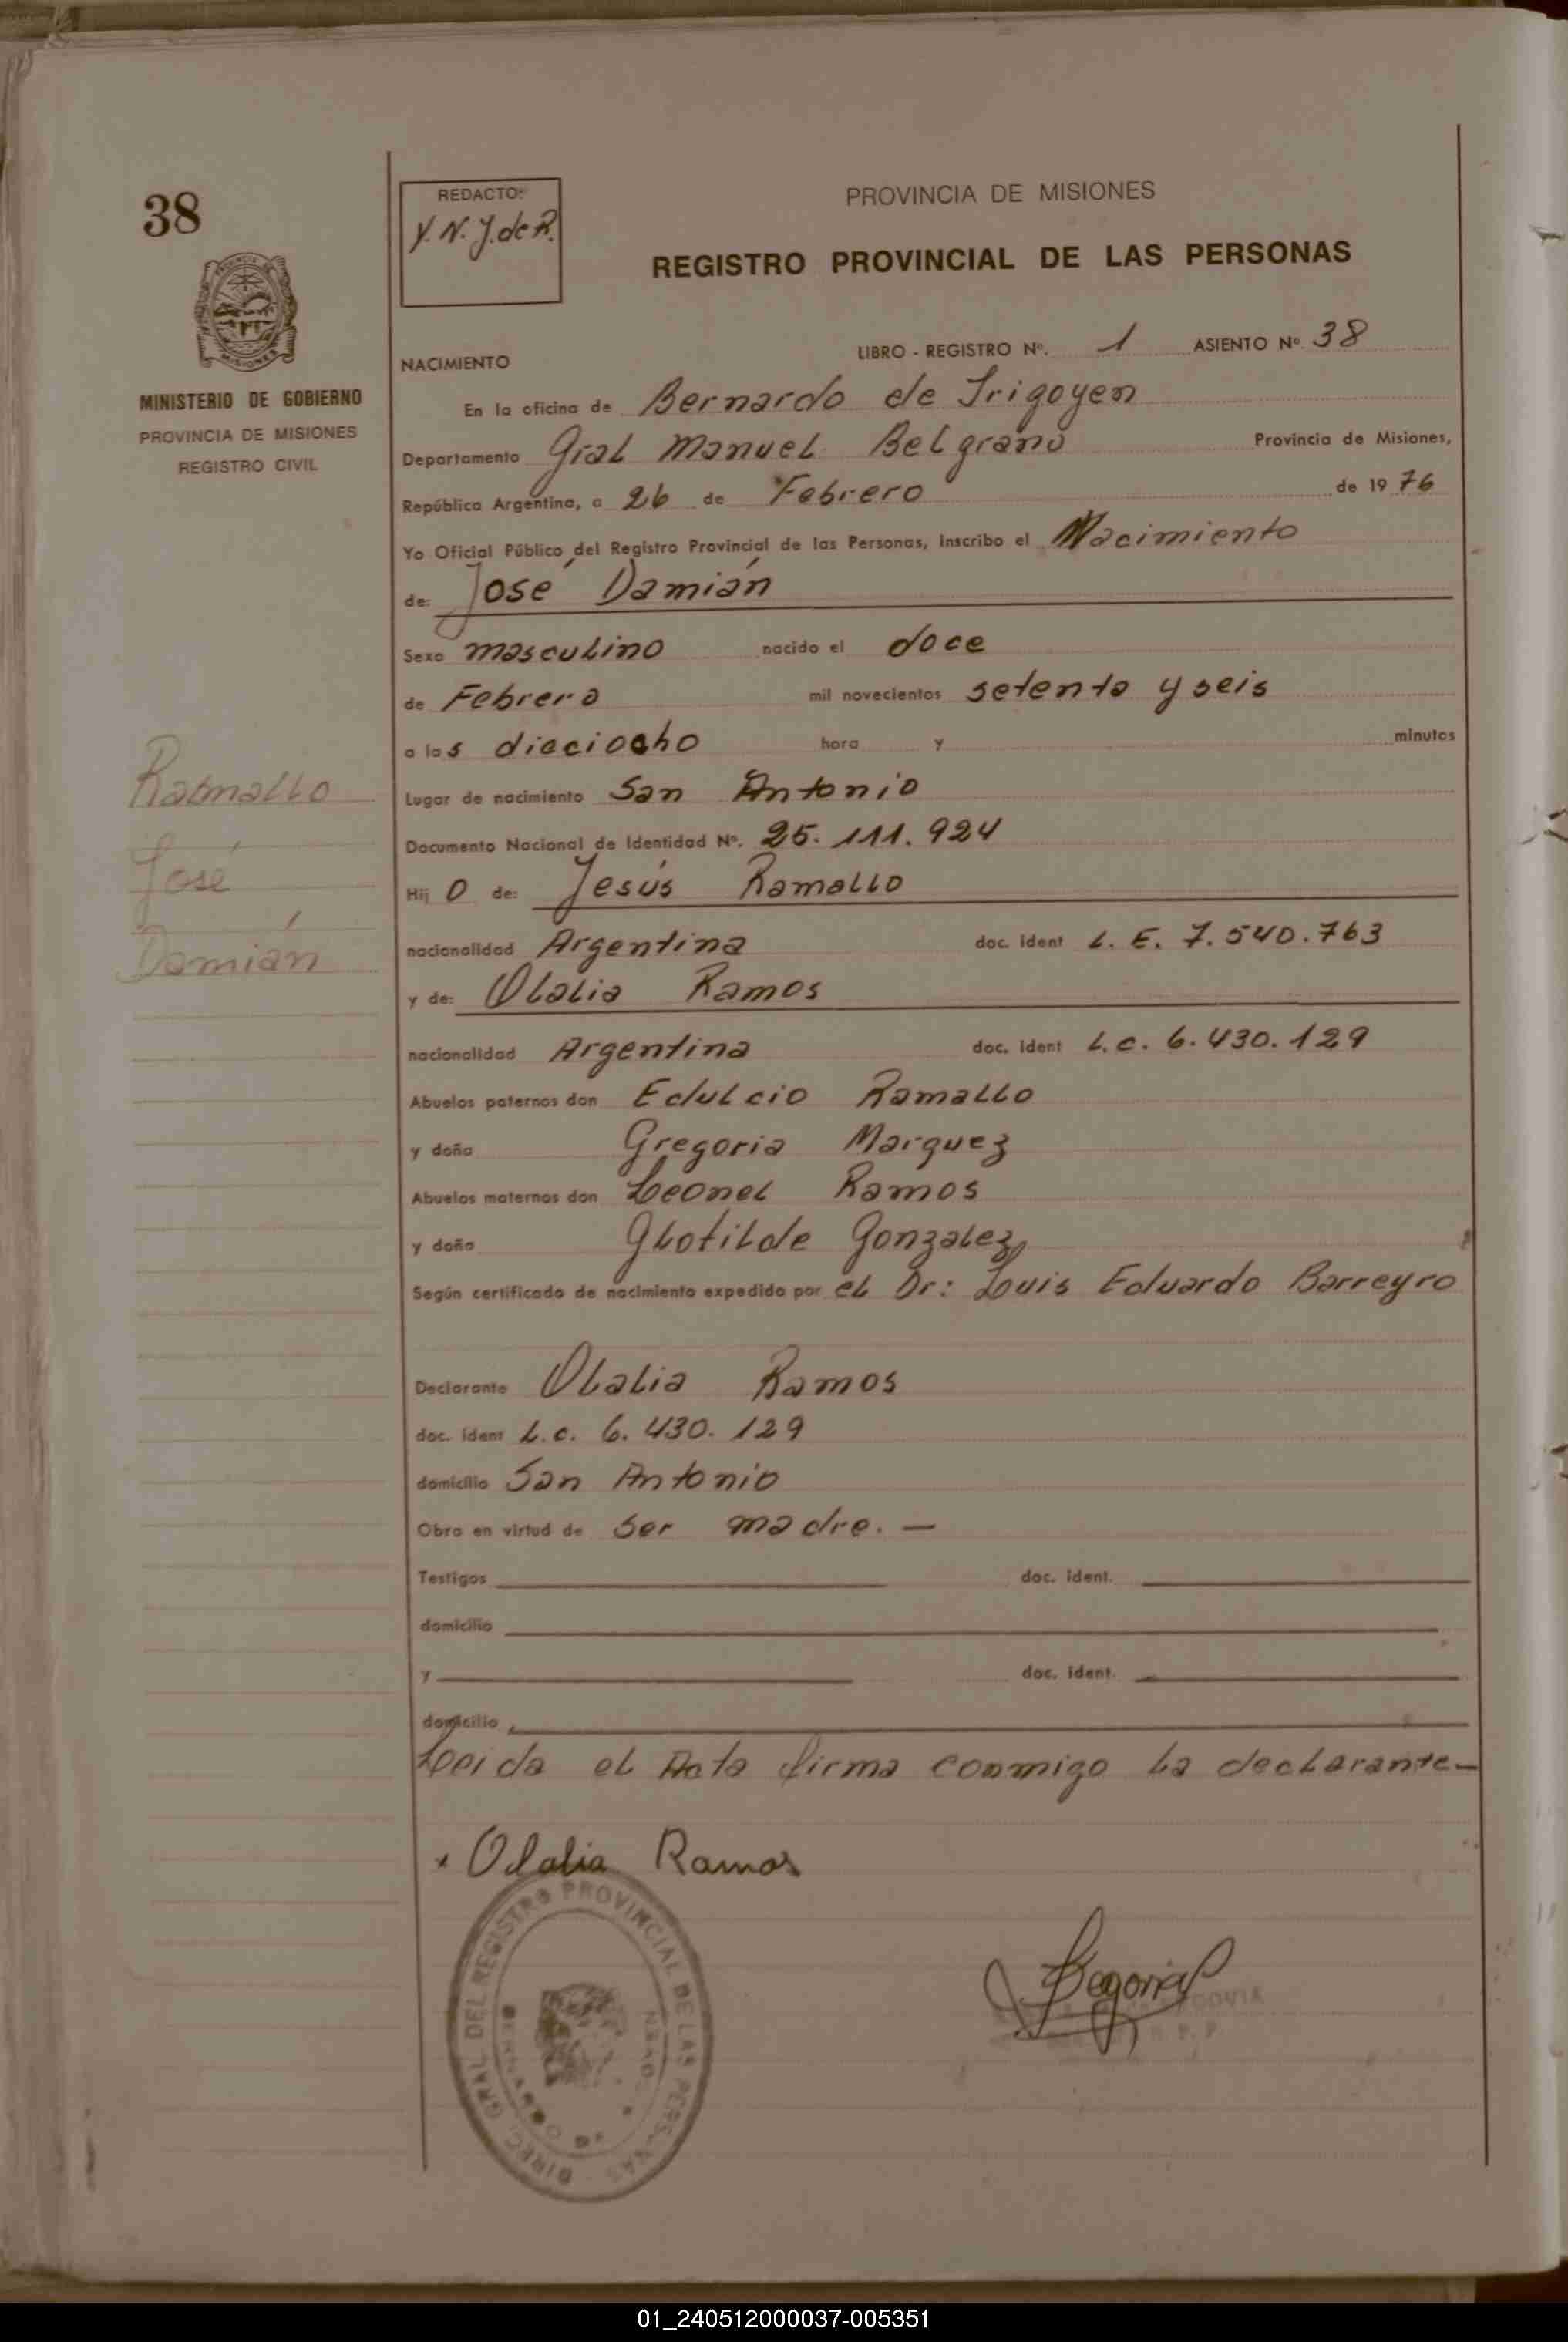 38
REDACTO:
Y. N. J. de R.
PROVINCIA DE MISIONES
REGISTRO PROVINCIAL DE LAS PERSONAS
PROVINCIA DE MISIONES
MINISTERIO DE GOBIERNO
PROVINCIA DE MISIONES
REGISTRO CIVIL
NACIMIENTO LIBRO - REGISTRO Nº. 1 ASIENTO Nº 38
En la oficina de Bernardo de Irigoyen
Departamento Gral Manuel Belgrano Provincia de Misiones,
República Argentina, a 26 de Febrero de 1976
Yo Oficial Público del Registro Provincial de las Personas, Inscribo el Nacimiento
de: José Damián
Sexo masculino nacido el doce
de Febrero mil novecientos setenta y seis
a las dieciocho hora y minutos
Lugar de nacimiento San Antonio
Documento Nacional de Identidad Nº. 25.111.924
Hijo de: Jesús Ramallo
nacionalidad Argentina doc. ident L. E. 7.540.763
y de: Olalia Ramos
nacionalidad Argentina doc. ident L.C. 6.430.129
Abuelos paternos don Edulcio Ramallo
y doña Gregoria Marquez
Abuelos maternos don Leonel Ramos
y doña Glotilde Gonzalez
Según certificado de nacimiento expedido por el Dr: Louis Eduardo Barreyro
Declarante Olalia Ramos
doc. ident L.C. 6.430.129
domicilio San Antonio
Obra en virtud de ser madre. —
Testigos doc. ident.
domicilio
y doc. ident.
domicilio
Leida el Acta firma conmigo la declarante-
Ramallo
José
Damián
Olalia Ramos
DIREC. GRAL. DEL REGISTRO PROVINCIAL DE LAS PERSONAS
Segovia
01_240512000037-005351